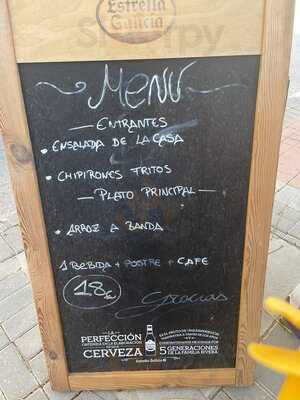 Estrella
Galicia
MENU
— ENTRANTES
• ENSALADA DE LA CASA
• CHIPIRONES FRITOS
— PLATO PRINCIPAL —
• ARROZ A BANDA
1 BEBIDA + POSTRE + CAFE
18€
Gracias
LA
PERFECCIÓN
CERVEZA
5 GENERACIONES
DE LA FAMILIA RIVERA